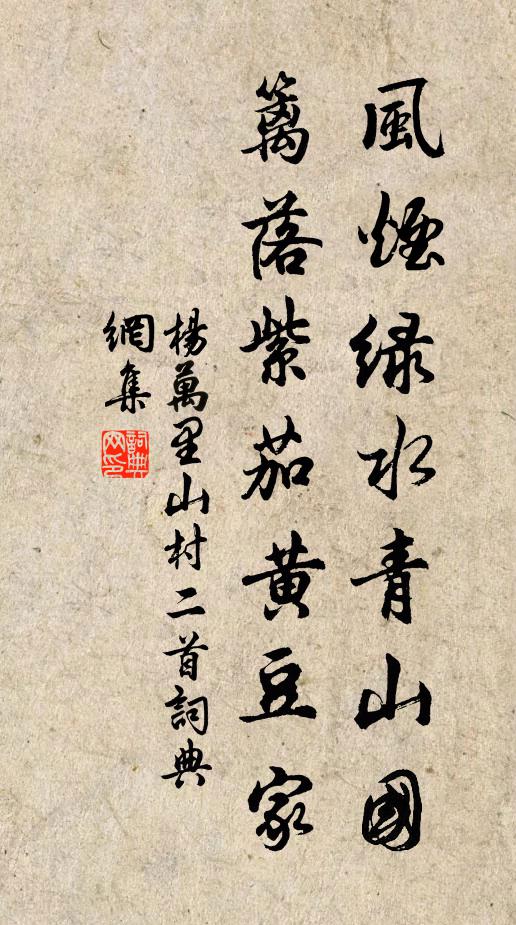 風煙綠水青山國
籬落紫茄黃豆家
楊萬里山村二首詞典
網集
詞典網印